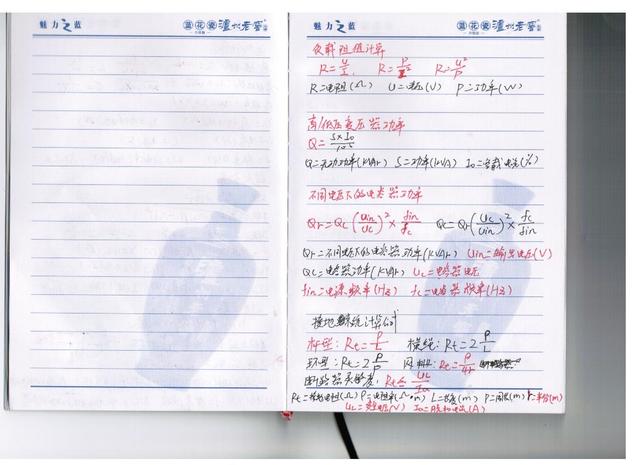 魅力之蓝
蓝花瓷 泸州老窖
魅力之蓝
蓝花瓷 泸州老窖
负载阻值计算
R=U/I, R=P/I² R=U²/P
R=电阻(Ω) U=电压(V) P=功率(W)
高/低压变压器功率
Q=S×I₀/10²
Q=无功功率(kVAr) S=功率(kVA) I₀=空载电流(%)
不同电压下的电容器功率
Qr=Qc(Uin/Uc)²×fin/fc Qc=Qr(Uc/Uin)²×fc/fin
Qr=不同电压下的电容器功率(kVAr) Uin=输出电压(V)
Qc=电容器功率(kVAr) Uc=电容器电压
fin=电源频率(Hz) fc=电容器频率(Hz)
接地系统计算公式
杆型:Rt=P/L 模绳:Rt=2P/L
环型:Rt=2P/P 网 Rt=P/4r
断路器灵敏度: Rt≤UL/Ia
Rt=接地电阻(Ω) P=电阻率(Ω·m) L=长度(m) P=周长(m) r=半径(m)
UL= 电压(V) Ia= 电流(A)